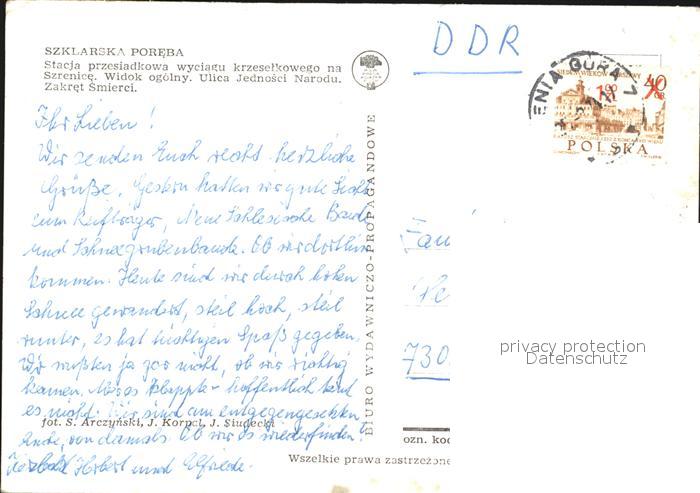 SZKLARSKA PORĘBA
Stacja przesiadkowa wyciągu krzesełkowego na
Szrenicę. Widok ogólny. Ulica Jedności Narodu.
Zakręt Śmierci.
Ihr Lieben!
Wir senden Euch recht herzliche
Grüße. Gestern hatten wir gute Sicht
zum Reifträger, Neue Schlesische Baude
und Schneegrubenbaude. Ob wir dorthin
kommen. Heute sind wir durch hohen
Schnee gewandert, steil hoch, steil
runter, es hat tüchtigen Spaß gegeben.
Wir wußten ja gar nicht, ob wir richtig
kamen. klappte - hoffentlich
es nicht. Wir sind am entgegengesetzten
Ende, von damals. Ob wir es wiederfinden?
Herbert und Elfriede.
fot. S. Arczyński, J. Korpal, J. Siudecki
BIURO WYDAWNICZO-PROPAGANDOWE
DDR
ENIA GÓRA 1
SIEDEM WIEKÓW WARSZAWY
40
GR
POLSKA
730
privacy protection
Datenschutz
ozn. kod
Wszelkie prawa zastrzeżone